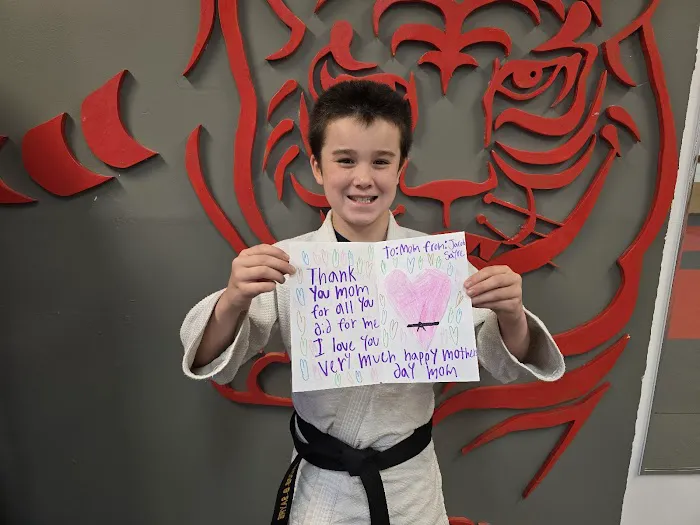 To: Mom from: Jacob
Sayre
Thank
You mom
for all you
did for me
I love you
very much happy mothers
day mom